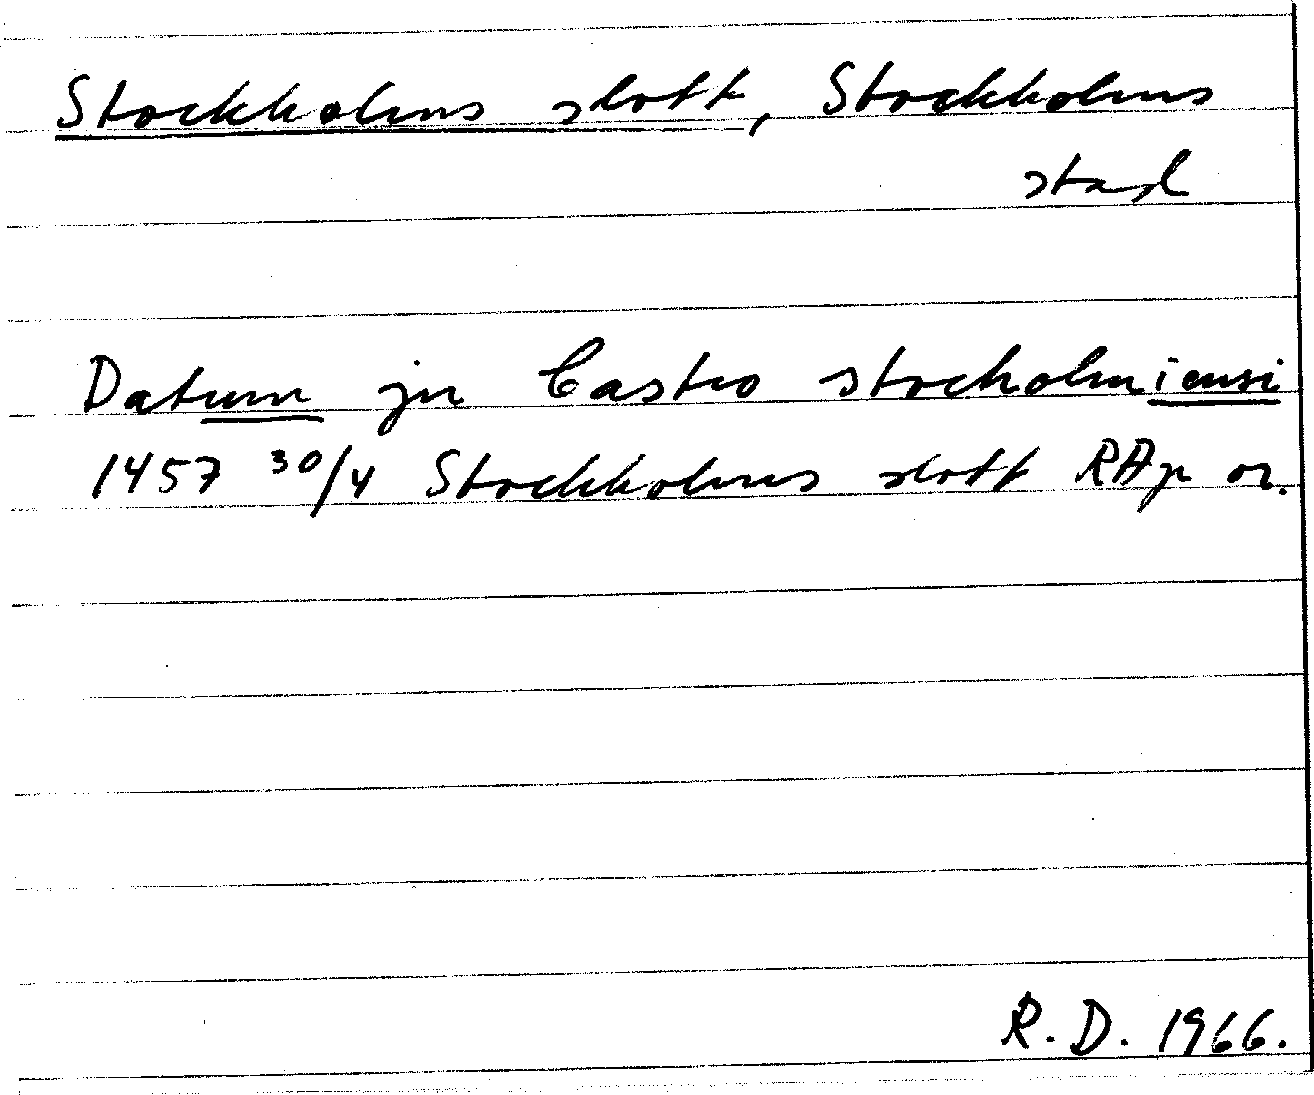 Stockholms slott, Stockholms
stad
Datum jn Castro stocholmiensi
1457 30/4 Stockholms slott RAp or.
R. D. 1966.